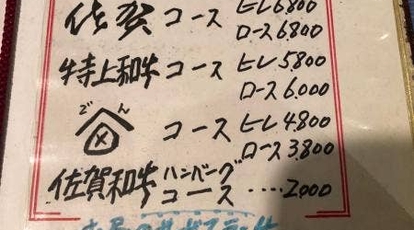 佐賀 コース ヒレ6800
ロース6800
特上和牛 コース ヒレ5,800
ロース6,000
ごん
コース ヒレ4,800
ロース3,800
佐賀和牛 ハンバーグ
コース ....2,000